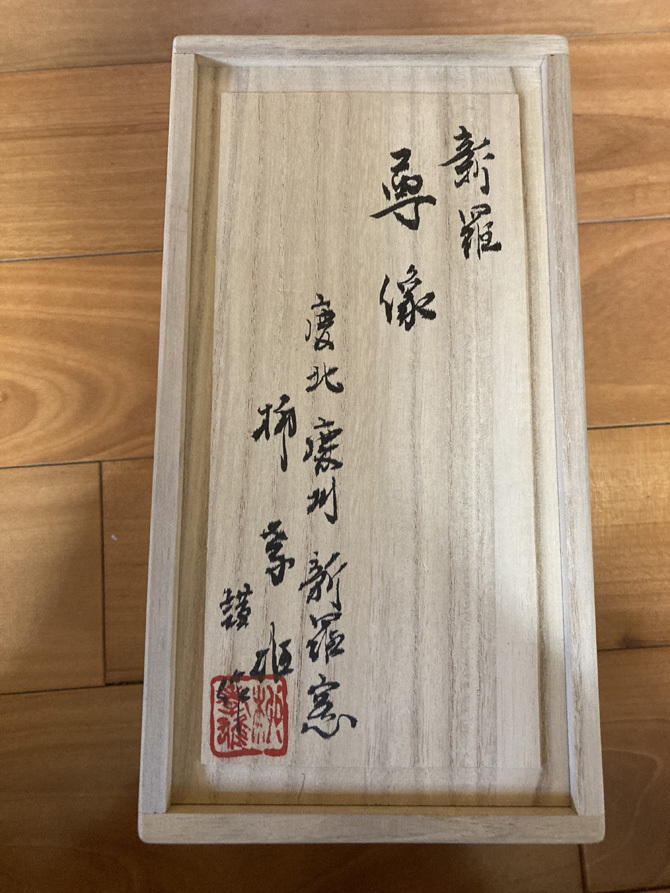 新羅
尊像
慶北慶州新羅窯
柳孝姫
謹作